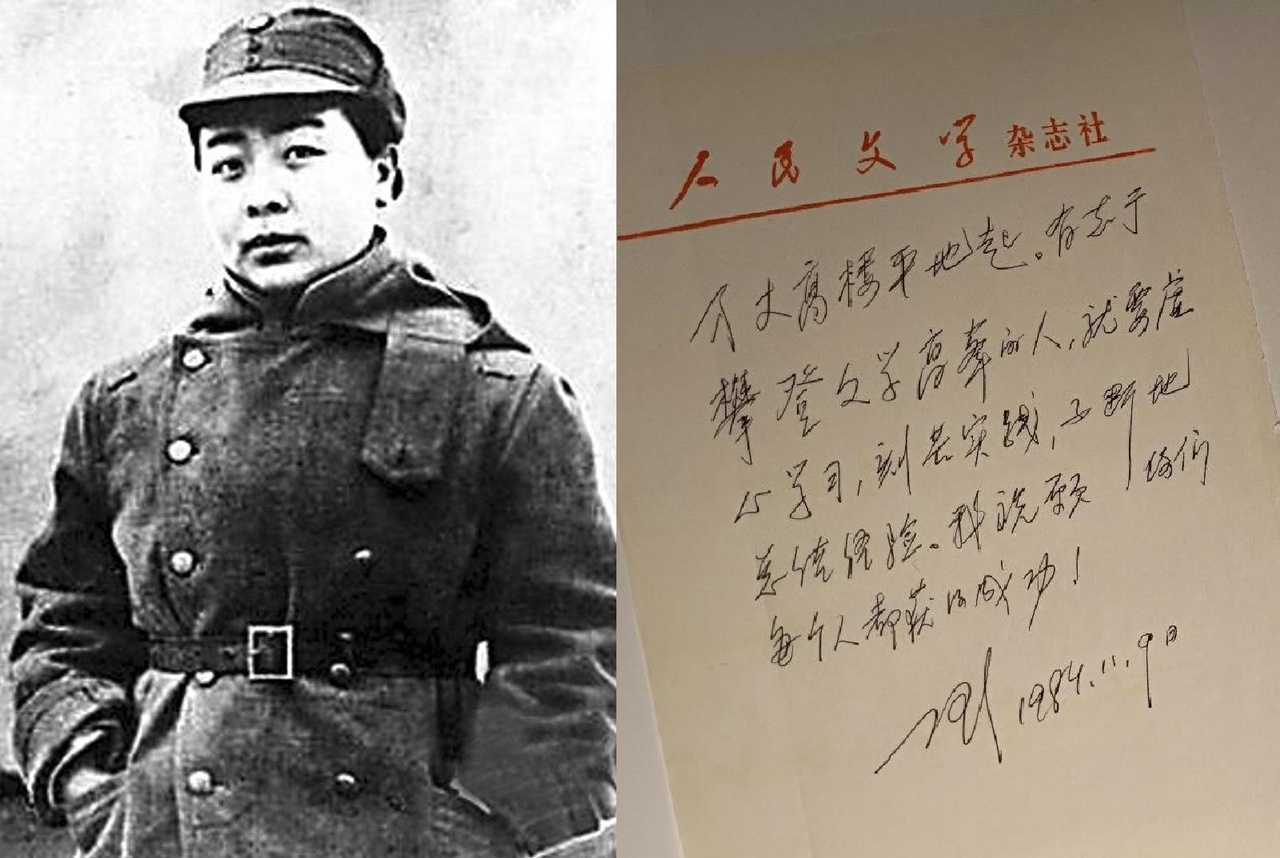 人民文学杂志社
万丈高楼平地起。有志于
攀登文学高峰的人,就要虚
心学习,刻苦实践,不断地
总结经验。我祝愿你们
每个人都获得成功!
1984.11.9日